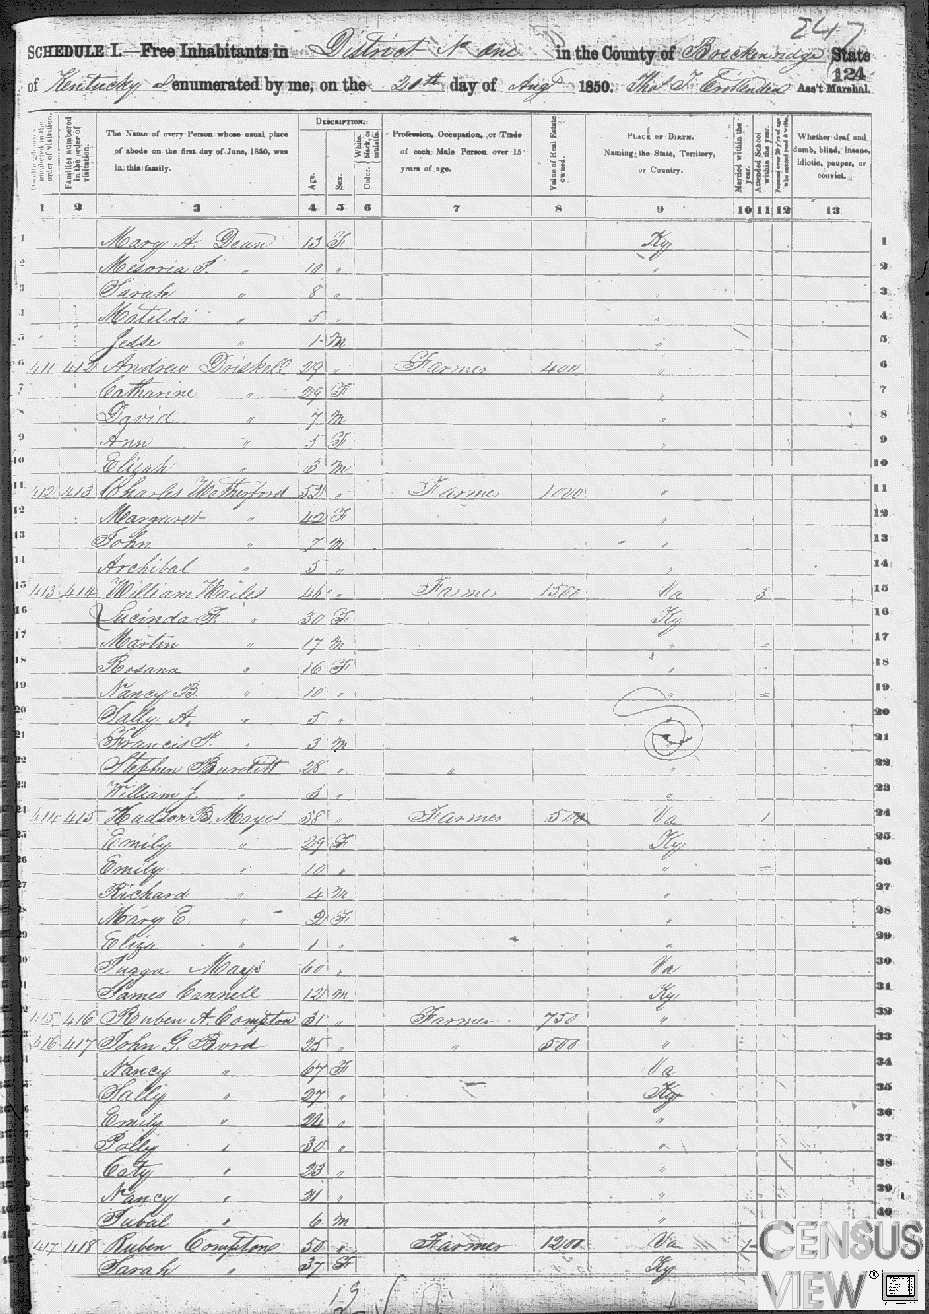 247
SCHEDULE I.—Free Inhabitants in District No One in the County of Breckenridge State
of Kentucky enumerated by me, on the 20th day of Augt 1850. Thos J. Ass't Marshal.
124
Families numbered in the order of visitation.
The Name of every Person whose usual place of abode on the first day of June, 1850, was in this family.
DESCRIPTION.
Age.
Sex.
Color. White, black, or mulatto.
Profession, Occupation, or Trade of each Male Person over 15 years of age.
Value of Real Estate owned.
PLACE OF BIRTH. Naming the State, Territory, or Country.
Married within the year.
Attended School within the year.
Whether deaf and dumb, blind, insane, idiotic, pauper, or convict.
1 2 3 4 5 6 7 8 9 10 11 12 13
1 Mary A. Dean 13 F Ky 1
2 " 10 " " 2
3 Sarah " 8 " " 3
4 Matilda " 5 " " 4
5 Jesse " 1 M " 5
6 411 412 Andrew Driskell 29 " Farmer 400 " 6
7 Catharine " 29 F " 7
8 David " 7 M " 8
9 Ann " 5 F " 9
10 Elijah " 3 M " 10
11 412 413 Charles Wetherford 52 " Farmer 1000 " 11
12 Margaret " 42 F " 12
13 John " 7 M " 13
14 Archibal " 5 " " 14
15 413 414 William Wailes 46 " Farmer 1500 Va 3 15
16 Lucinda F. " 30 F Ky 16
17 Martin " 17 M " 17
18 Rosana " 16 F " 18
19 Nancy B. " 10 " " 19
20 Sally A. " 5 " 20
21 Francis S. " 3 M 21
22 Stephen Burdett 28 " " " 22
23 William J. " 5 " " 23
24 414 415 Hudson B. Mayes 38 " Farmer 500 Va 1 24
25 Emily " 29 F Ky 25
26 Emily " 10 " " 26
27 Richard " 4 M " 27
28 Mary E. " 2 F " 28
29 Eliza " 1 " " 29
30 Mays 60 " Va 30
31 James Cannell 12 M Ky 31
32 415 416 Ruben A. Compton 31 " Farmer 750 " 32
33 416 417 John G. Burd 25 " " 500 " 33
34 Nancy " 67 F Va 34
35 Sally " 27 " Ky 35
36 Emily " 24 " " 36
37 Polly " 30 " " 37
38 Caty " 23 " " 38
39 Nancy " 21 " " 39
40 Jubal " 6 M " 40
417 418 Ruben Compton 50 " Farmer 1200 Va 1
Sarah " 37 F Ky
13
CENSUS
VIEW®